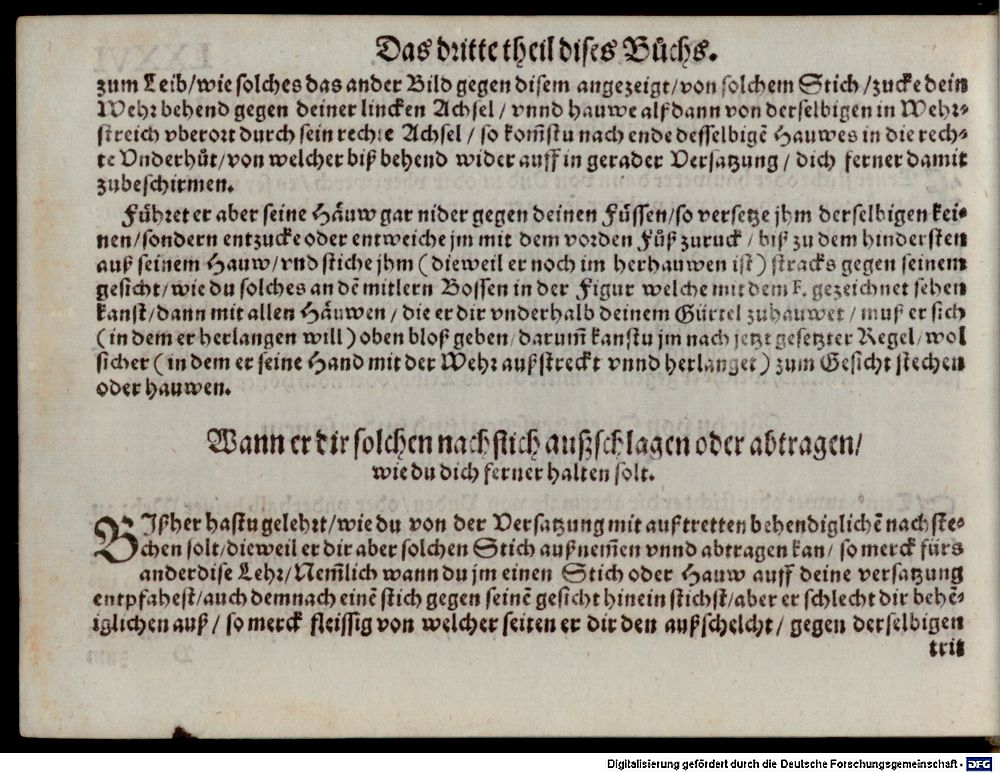 Das dritte theil dises Bůchs.
zum Leib/wie solches das ander Bild gegen disem angezeigt/von solchem Stich/zucke dein
Wehr behend gegen deiner lincken Achsel/vnnd hauwe alßdann von derselbigen in Wehr-
streich vberort durch sein rechte Achsel/so kom̃stu nach ende desselbigẽ Hauwes in die rech-
te Vnderhůt/von welcher biß behend wider auff in gerader Versatzung/dich ferner damit
zubeschirmen.
Führet er aber seine Häuw gar nider gegen deinen Füssen/so versetze jhm derselbigen kei-
nen/sondern entzucke oder entweiche jm mit dem vorden Fůß zuruck/biß zu dem hindersten
auß seinem Hauw/vnd stiche jhm (dieweil er noch im herhauwen ist) stracks gegen seinem
gesicht/wie du solches an dẽ mitlern Bossen in der Figur welche mit dem F. gezeichnet sehen
kanst/dann mit allen Häuwen/die er dir vnderhalb deinem Gürtel zuhauwet/muß er sich
(in dem er herlangen will) oben bloß geben/darum̃ kanstu jm nach jetzt gesetzter Regel/wol
sicher (in dem er seine Hand mit der Wehr außstreckt vnnd herlanget) zum Gesicht stechen
oder hauwen.
Wann er dir solchen nachstich außschlagen oder abtragen/
wie du dich ferner halten solt.
BIßher hastu gelehrt/wie du von der Versatzung mit außtretten behendiglichẽ nachste-
chen solt/dieweil er dir aber solchen Stich außnem̃en vnnd abtragen kan/so merck fürs
ander dise Lehr/Nem̃lich wann du jm einen Stich oder Hauw auff deine versatzung
entpfahest/auch demnach einẽ stich gegen seinẽ gesicht hinein stichst/aber er schlecht dir behẽ-
iglichen auß/so merck fleissig von welcher seiten er dir den außschelcht/gegen derselbigen
trit
Digitalisierung gefördert durch die Deutsche Forschungsgemeinschaft - DFG